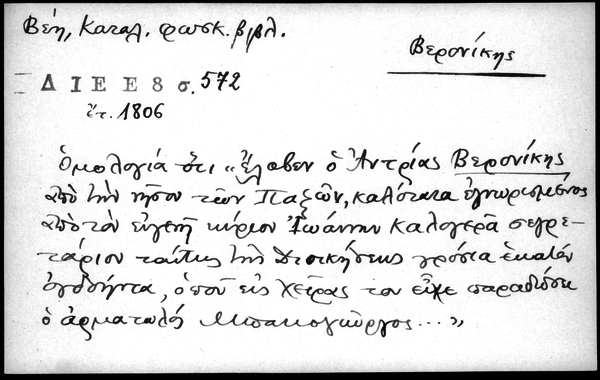 Βέη, Καταλ. φωσκ. βιβλ.
Βερονίκης
Δ Ι Ε Ε 8 σ. 572
ἔτ. 1806
Ὁμολογία ὅτι "ἔλαβεν ὁ Ἀντρίας Βερονίκης
ἀπὸ τὴν νῆσον τῶν Παξῶν, καλότατα ἐγνωρισμένος
ἀπὸ τὸν εὐγενῆ κύριον Ἰωάννην Καλογερᾶ σεγρε-
τάριον ταύτης τῆς Διοικήσεως γρόσια ἑκατὸν
ὀγδοήντα, ὁποῦ εἰς χεῖρας του εἶχε παραδώσει
ὁ ἁρματωλὸς Μπακογιῶργος..."